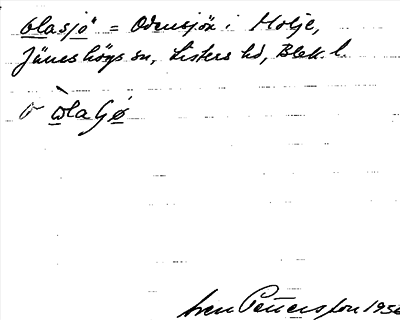 Olasjö = Odensjön i Holje,
Jämshögs sn, Listers hd, Blek. l.
Olasjö
Sven Pettersson 1956